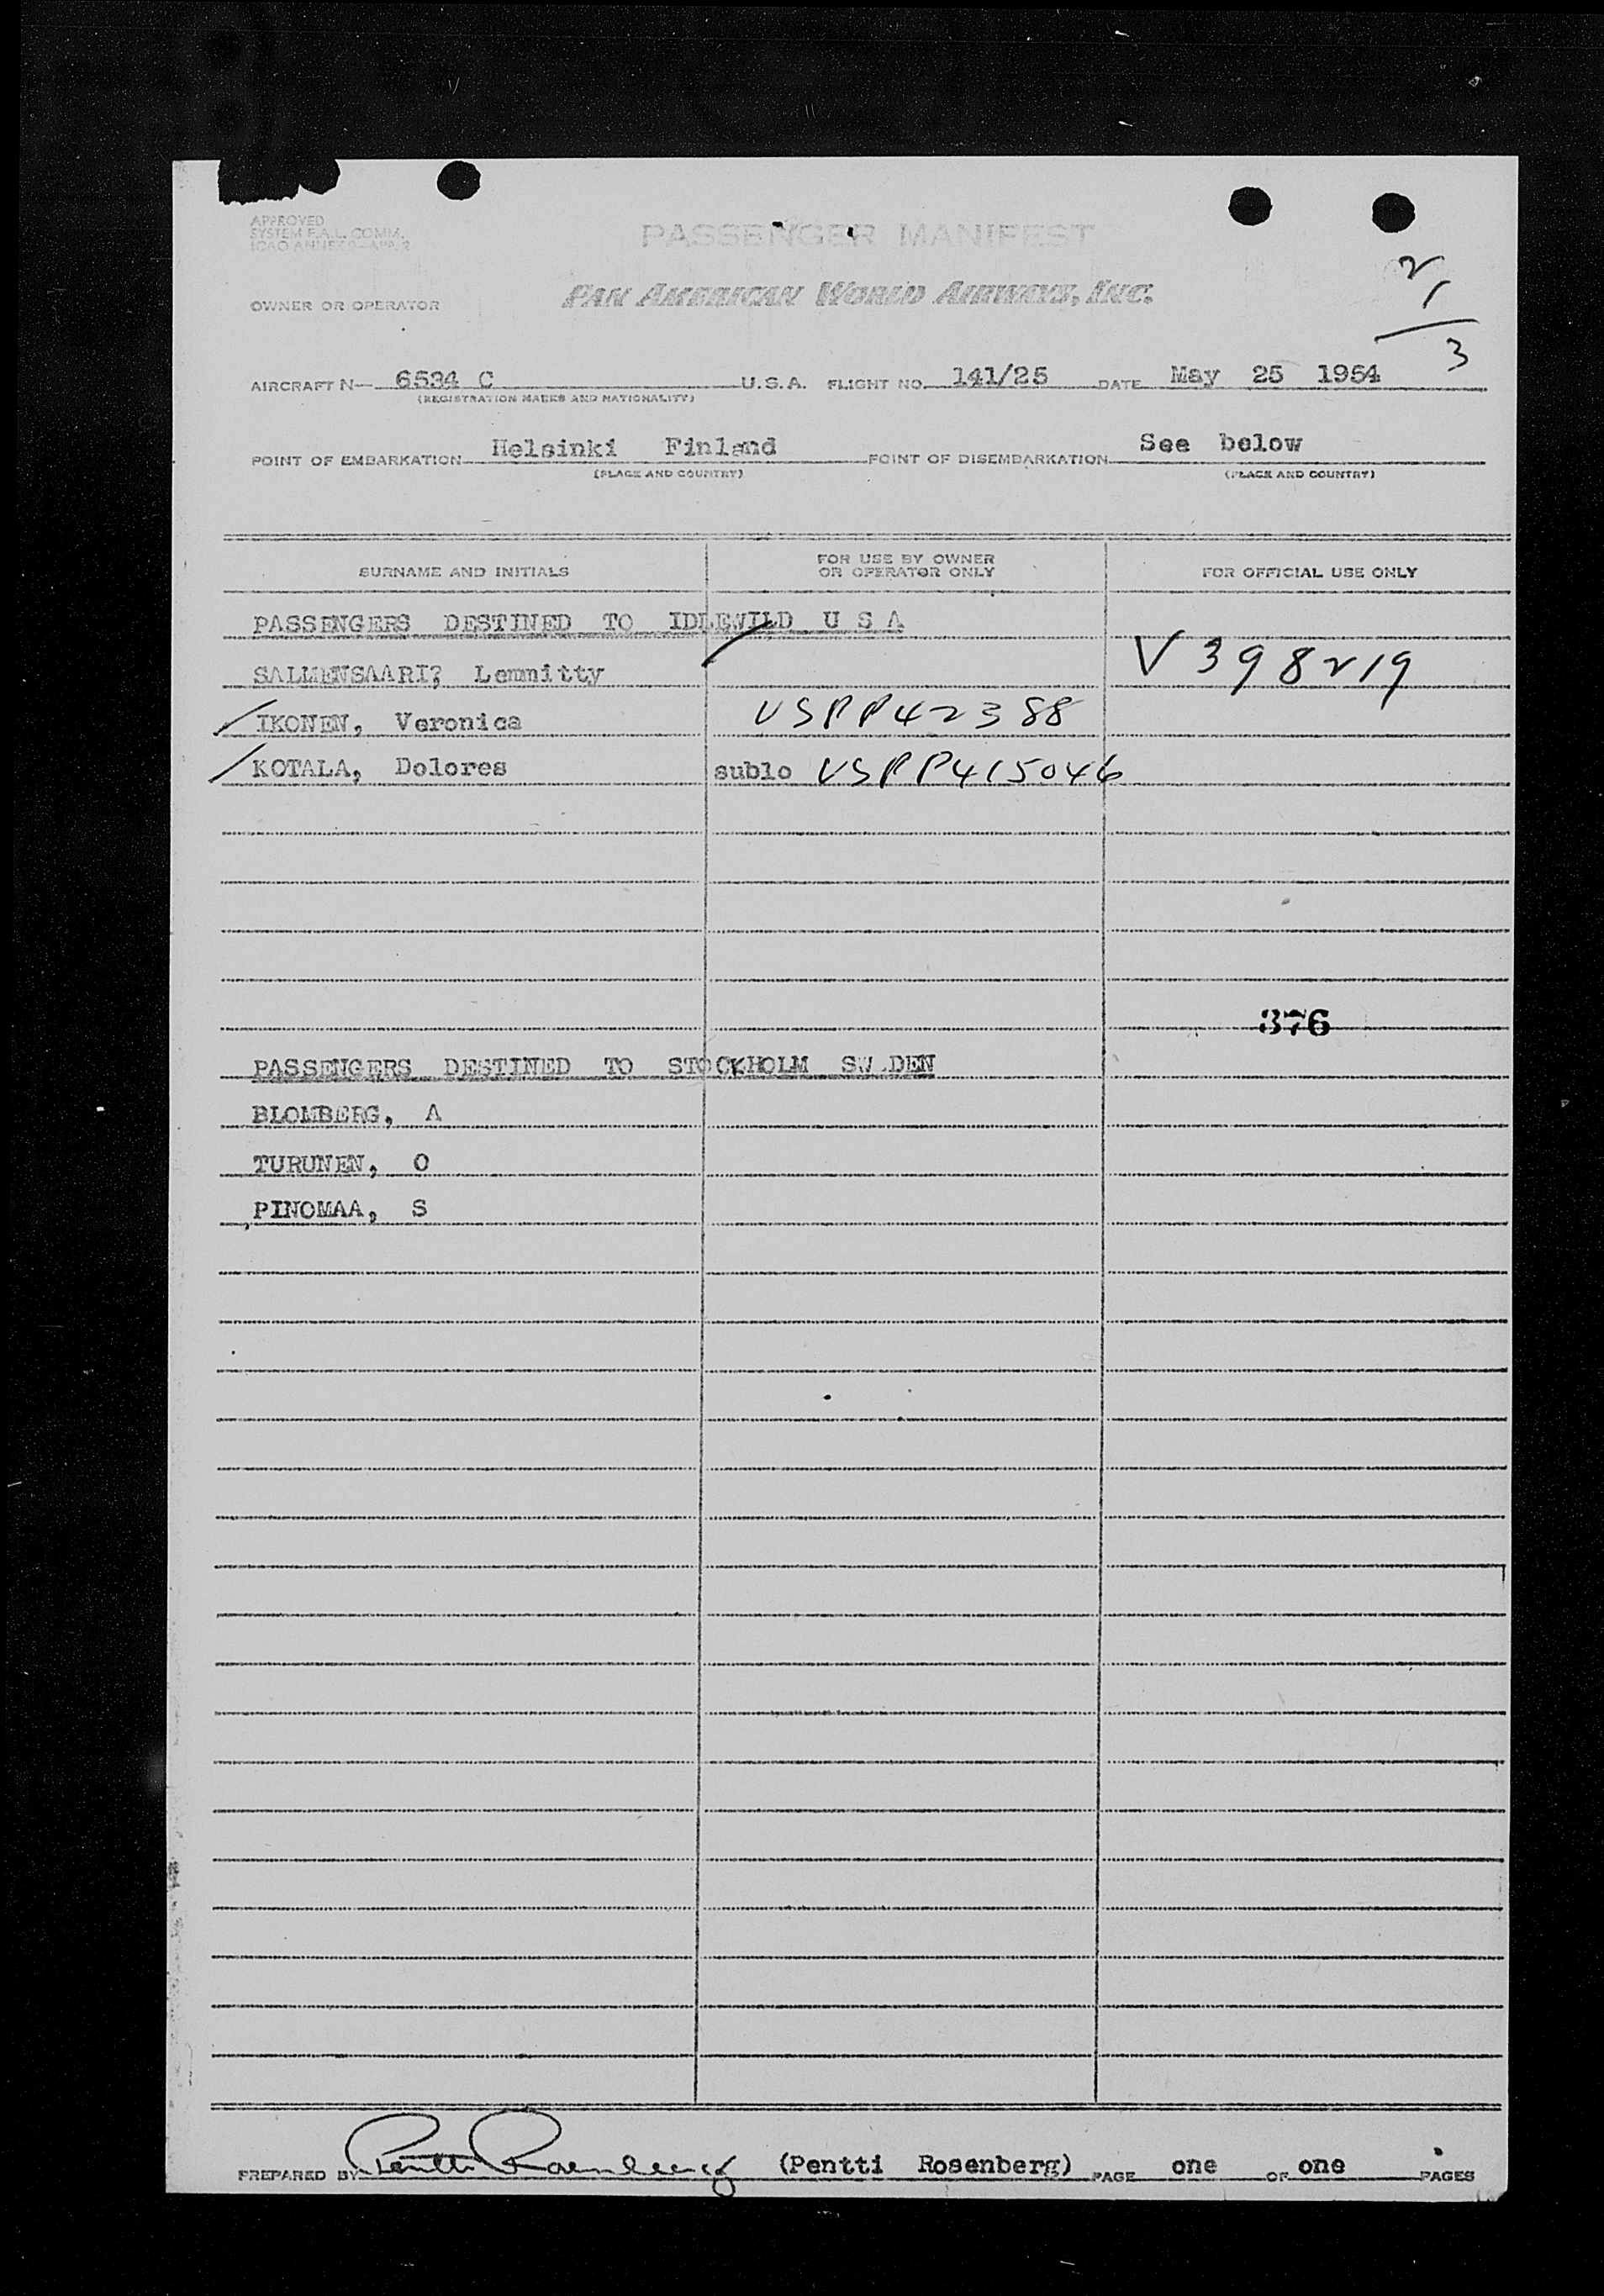 APPROVED
SYSTEM F.A.L. COMM.
ICAO ANNEX 9—APP. 3
PASSENGER MANIFEST
2
1
3
OWNER OR OPERATOR PAN AMERICAN WORLD AIRWAYS, INC.
AIRCRAFT N— 6534 C U.S.A. FLIGHT NO. 141/25 DATE May 25 1954
(REGISTRATION MARKS AND NATIONALITY)
POINT OF EMBARKATION Helsinki Finland POINT OF DISEMBARKATION See below
(PLACE AND COUNTRY) (PLACE AND COUNTRY)
SURNAME AND INITIALS FOR USE BY OWNER OR OPERATOR ONLY FOR OFFICIAL USE ONLY
PASSENGERS DESTINED TO IDLEWILD U S A
SALMENSAARI? Lemmitty V398219
IKONEN, Veronica USPP42388
KOTALA, Dolores sublo USPP415046
376
PASSENGERS DESTINED TO STOCKHOLM SW.DEN
BLOMBERG, A
TURUNEN, O
PINOMAA, S
PREPARED BY Pentti Rosenberg (Pentti Rosenberg) PAGE one OF one PAGES